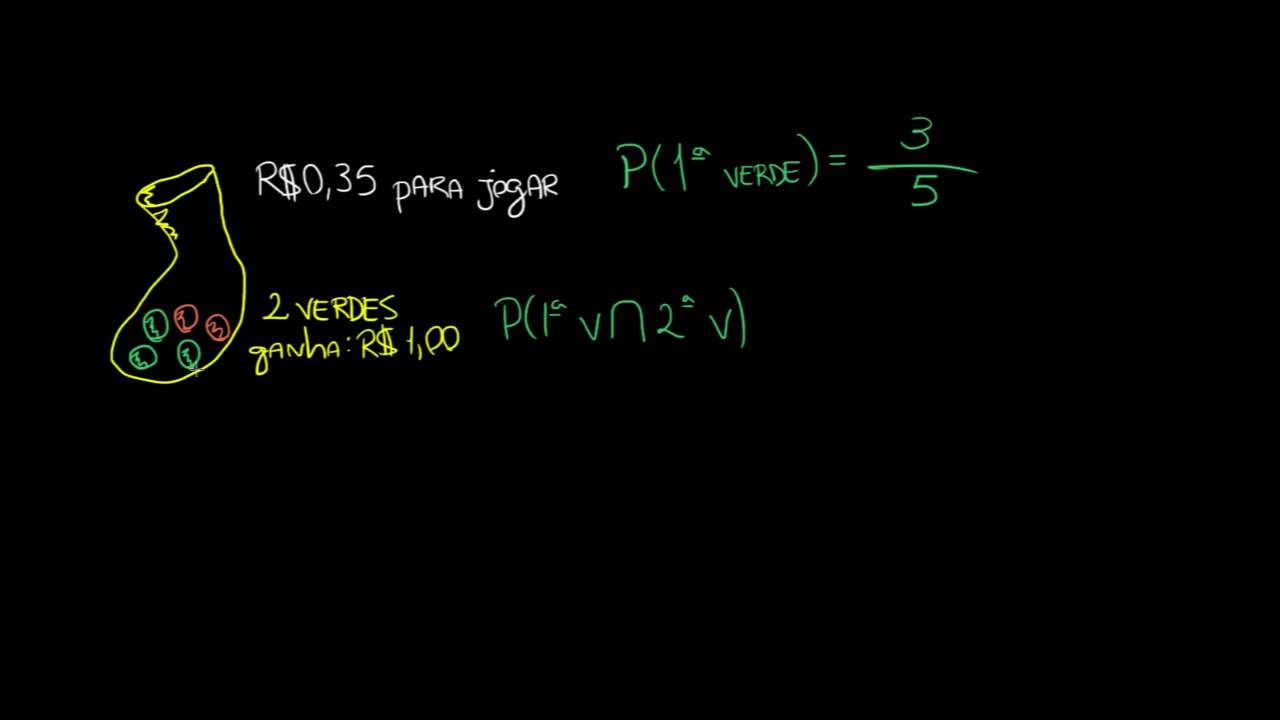 R$0,35 PARA jogAR
P(1ª VERDE) = 3/5
2 VERDES
gANhA: R$ 1,00
P(1ª V ∩ 2ª V)